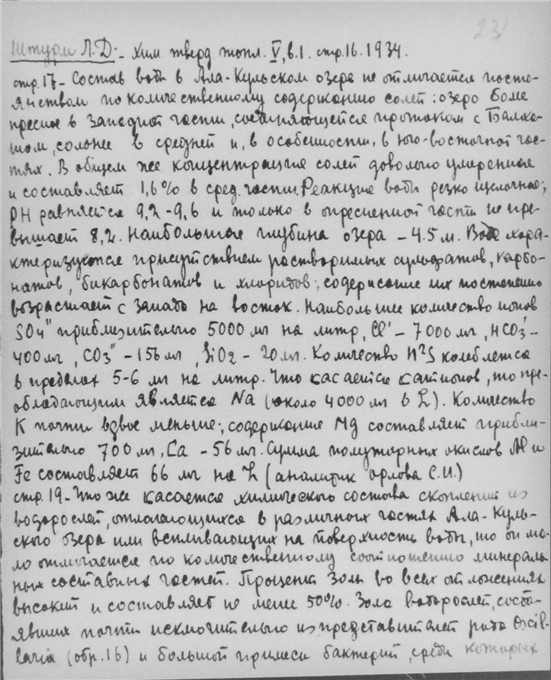 23
Штурм Л.Д. – Хим тверд топл. V, в.1. стр.16. 1934.
стр.17 – Состав воды в Ала-Кульском озера не отличается посто-
янством по количественному содержанию солей: озеро более
пресное в западной части, соединяющейся протоком с Балха-
шом, солонее в средней и, в особенности, в юго-восточной час-
тях. В общем же концентрация солей довольно умеренная
и составляет 1,6% в сред. части. Реакция воды резко щелочная;
PH равняется 9,2-9,6 и только в опресненной части не пре-
вышает 8,2. Наибольшая глубина озера – 4.5 м. Вода хара-
ктеризуются присутствием растворимых сульфатов, карбо-
натов, бикарбонатов и хлоридов; содержание их постепенно
возрастает с запада на восток. Наибольшее количество ионов
SO4" приблизительно 5000 мг на литр, Cl' – 7000 мг, HCO3' –
400 мг, CO3" – 156 мг, SiO2 – 20 мг. Количество H2S колеблется
в пределах 5-6 мг на литр. Что касается катионов, то пре-
обладающим является Na (около 4000 мг в L). Количество
K почти вдвое меньше; содержание Mg составляет прибли-
зительно 700 мг, Ca – 56 мг. Сумма полуторных окислов Al и
Fe составляет 66 мг на L (аналитик Орлова С.И.)
стр. 19 – Что же касается химического состава скоплений из
водорослей, отлагающихся в различных частях Ала-Куль-
ского озера или всплывающих на поверхность воды, то он ма-
ло отличается по количественному соотношению минераль-
ных составных частей. Процент золы во всех отложениях
высокий и составляет не менее 50%. Зола водорослей, состо-
явших почти исключительно из представителей рода Oscil-
laria (обр. 16) и большой примеси бактерий, среди которых